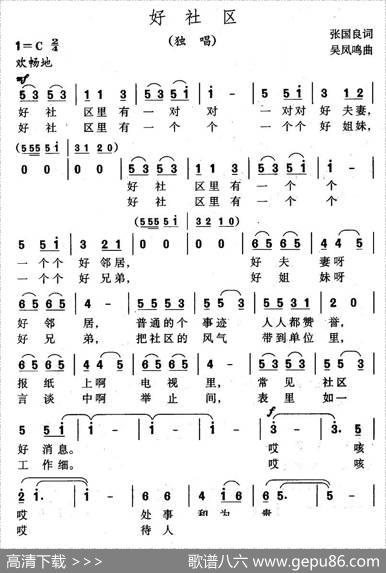 好社区
(独唱)
张国良词
吴凤鸣曲
1=C 2/4
欢畅地
mf
5 3 5 3 | 1 1 3 | 5 5 5 5 | i - | 5 5 i | 3 1 2 |
好 社 区里有 一对 对 一对对 好夫妻,
好 社 区里有 一个 个 一个个 好姐妹,
(5 5 5 5 i | 3 1 2 0)
0 0 | 0 0 | 5 3 5 3 | 1 1 3 | 5 5 5 5 | i - |
好 社 区里有 一个 个
好 社 区里有 一个 个
(5 5 5 5 i | 3 2 1 0)
5 5 i | 3 2 1 | 0 0 | 0 0 | 6 5 6 5 | 4 4 5 |
一个个 好邻居, 好 夫 妻呀
一个个 好兄弟, 好 姐 妹呀
6 5 6 5 | 4 - | 5 5 5 3 | 5 5 3 | 5 5 3 1 | 2 0 |
好 邻 居, 普通的个 事迹 人人都赞 誉,
好 兄 弟, 把社区的 风气 带到单位 里,
报纸 上啊 电视 里, 常见 社区
言谈 中啊 举止 间, 表里 如一
f
好消息。 哎 咳
工作细。 哎 咳
哎 处事 和为 贵
哎 待人
高清下载 >>>
歌谱八六 www.gepu86.com